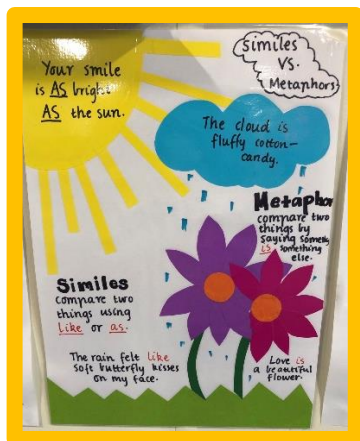 Similes
vs.
Metaphors
Your smile
is AS bright
AS the sun.
The cloud is
fluffy cotton-
candy.
Metaphor
compare two
things by
saying something
is something
else.
Similes
compare two
things using
like or as.
The rain felt like
soft butterfly kisses
on my face.
Love is
a beautiful
flower.